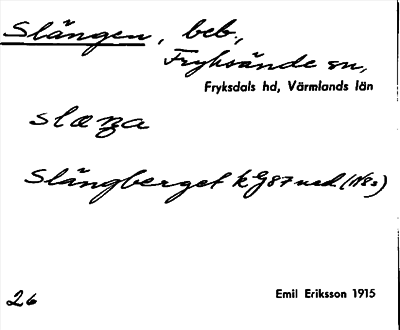 Slängen, beb.,
Fryksände sn,
Fryksdals hd, Värmlands län
slæŋa
Slängberget k G87 ned. (N8s)
26
Emil Eriksson 1915